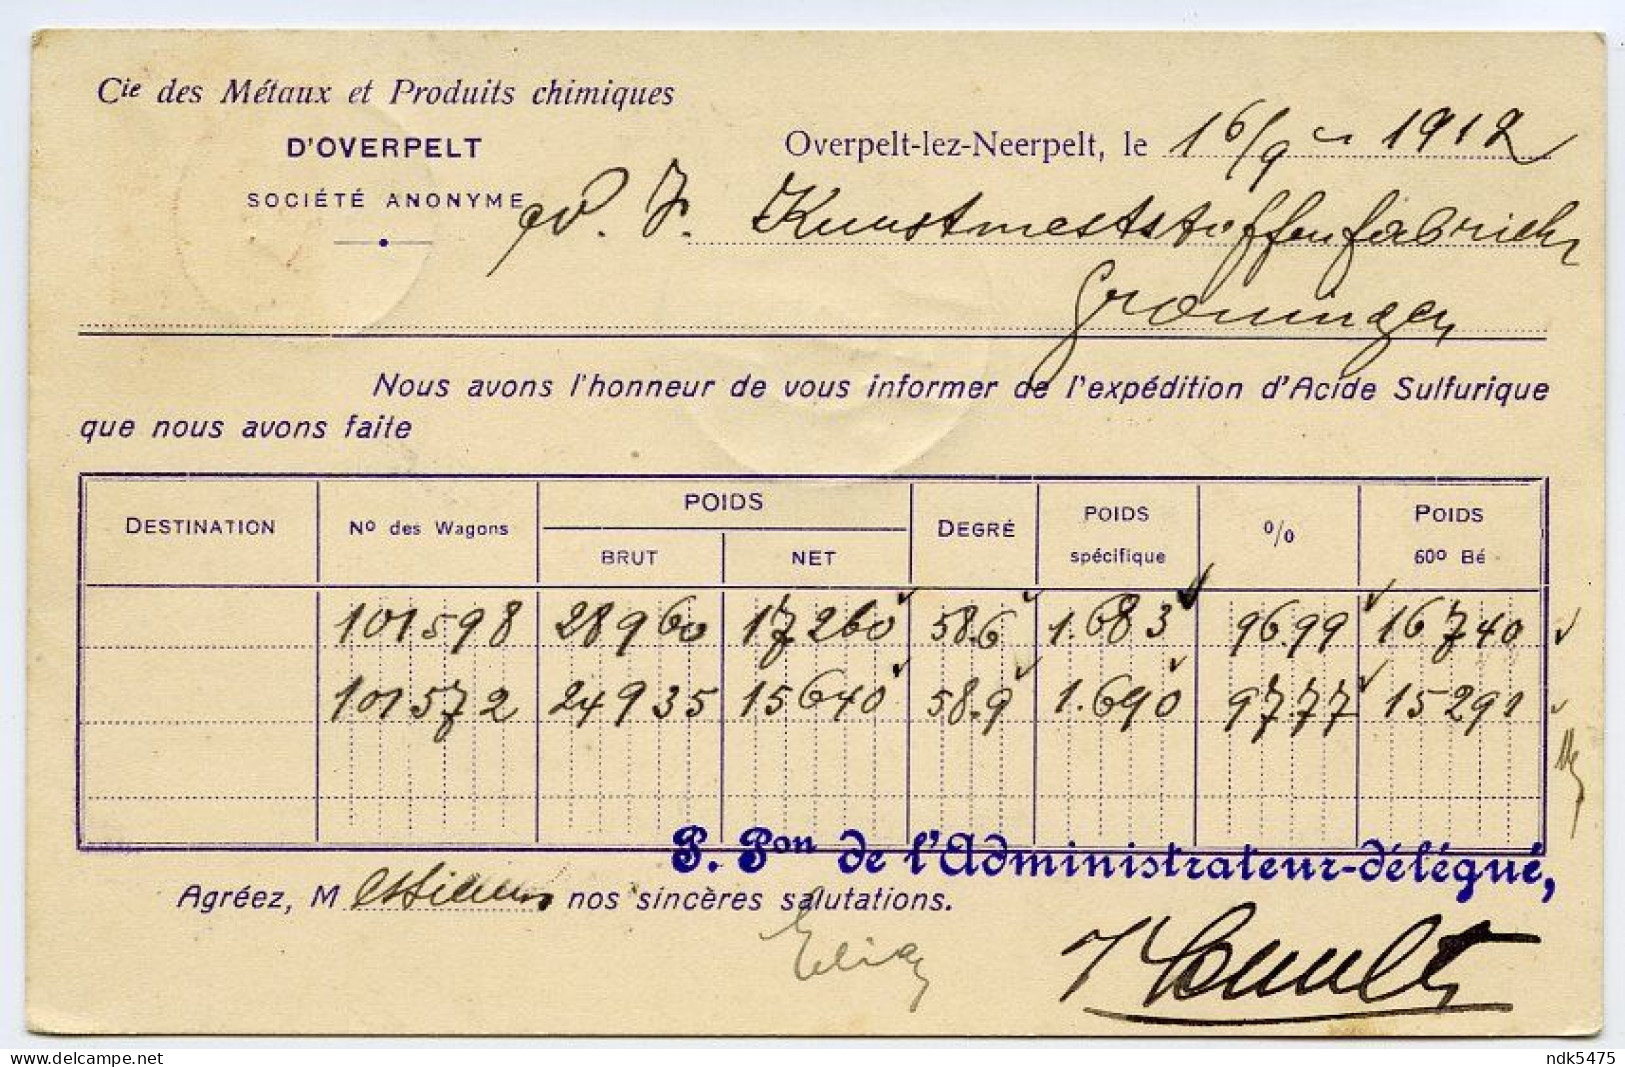 Cie des Métaux et Produits chimiques
D'OVERPELT
SOCIÉTÉ ANONYME
Overpelt-lez-Neerpelt, le 16/9 1912
Kunstmeststoffenfabriek
Groningen
Nous avons l'honneur de vous informer de l'expédition d'Acide Sulfurique
que nous avons faite
DESTINATION Nº des Wagons POIDS BRUT NET DEGRÉ POIDS spécifique % POIDS 60º Bé
101598 28960 17260 58.6 1.683 96.99 16740
101572 24935 15640 58.9 1.690 97.77 15291
P. Pon de l'Administrateur-délégué,
Agréez, Messieurs nos sincères salutations.
ndk5475